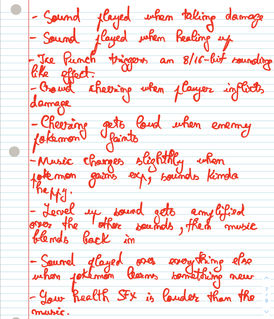 - Sound played when taking damage
- Sound played when healing up
- Ice Punch triggers an 8/16-bit sounding
like effect.
- Crowd cheering when player inflicts
damage
- Cheering gets loud when enemy
pokemon faints
- Music changes slightly when
pokemon gains exp, sounds kinda
happy.
- Level up sound gets amplified
over the other sounds, then music
blends back in
- Sound played over everything else
when pokemon learns something new
- Low health SFX is louder than the
music.